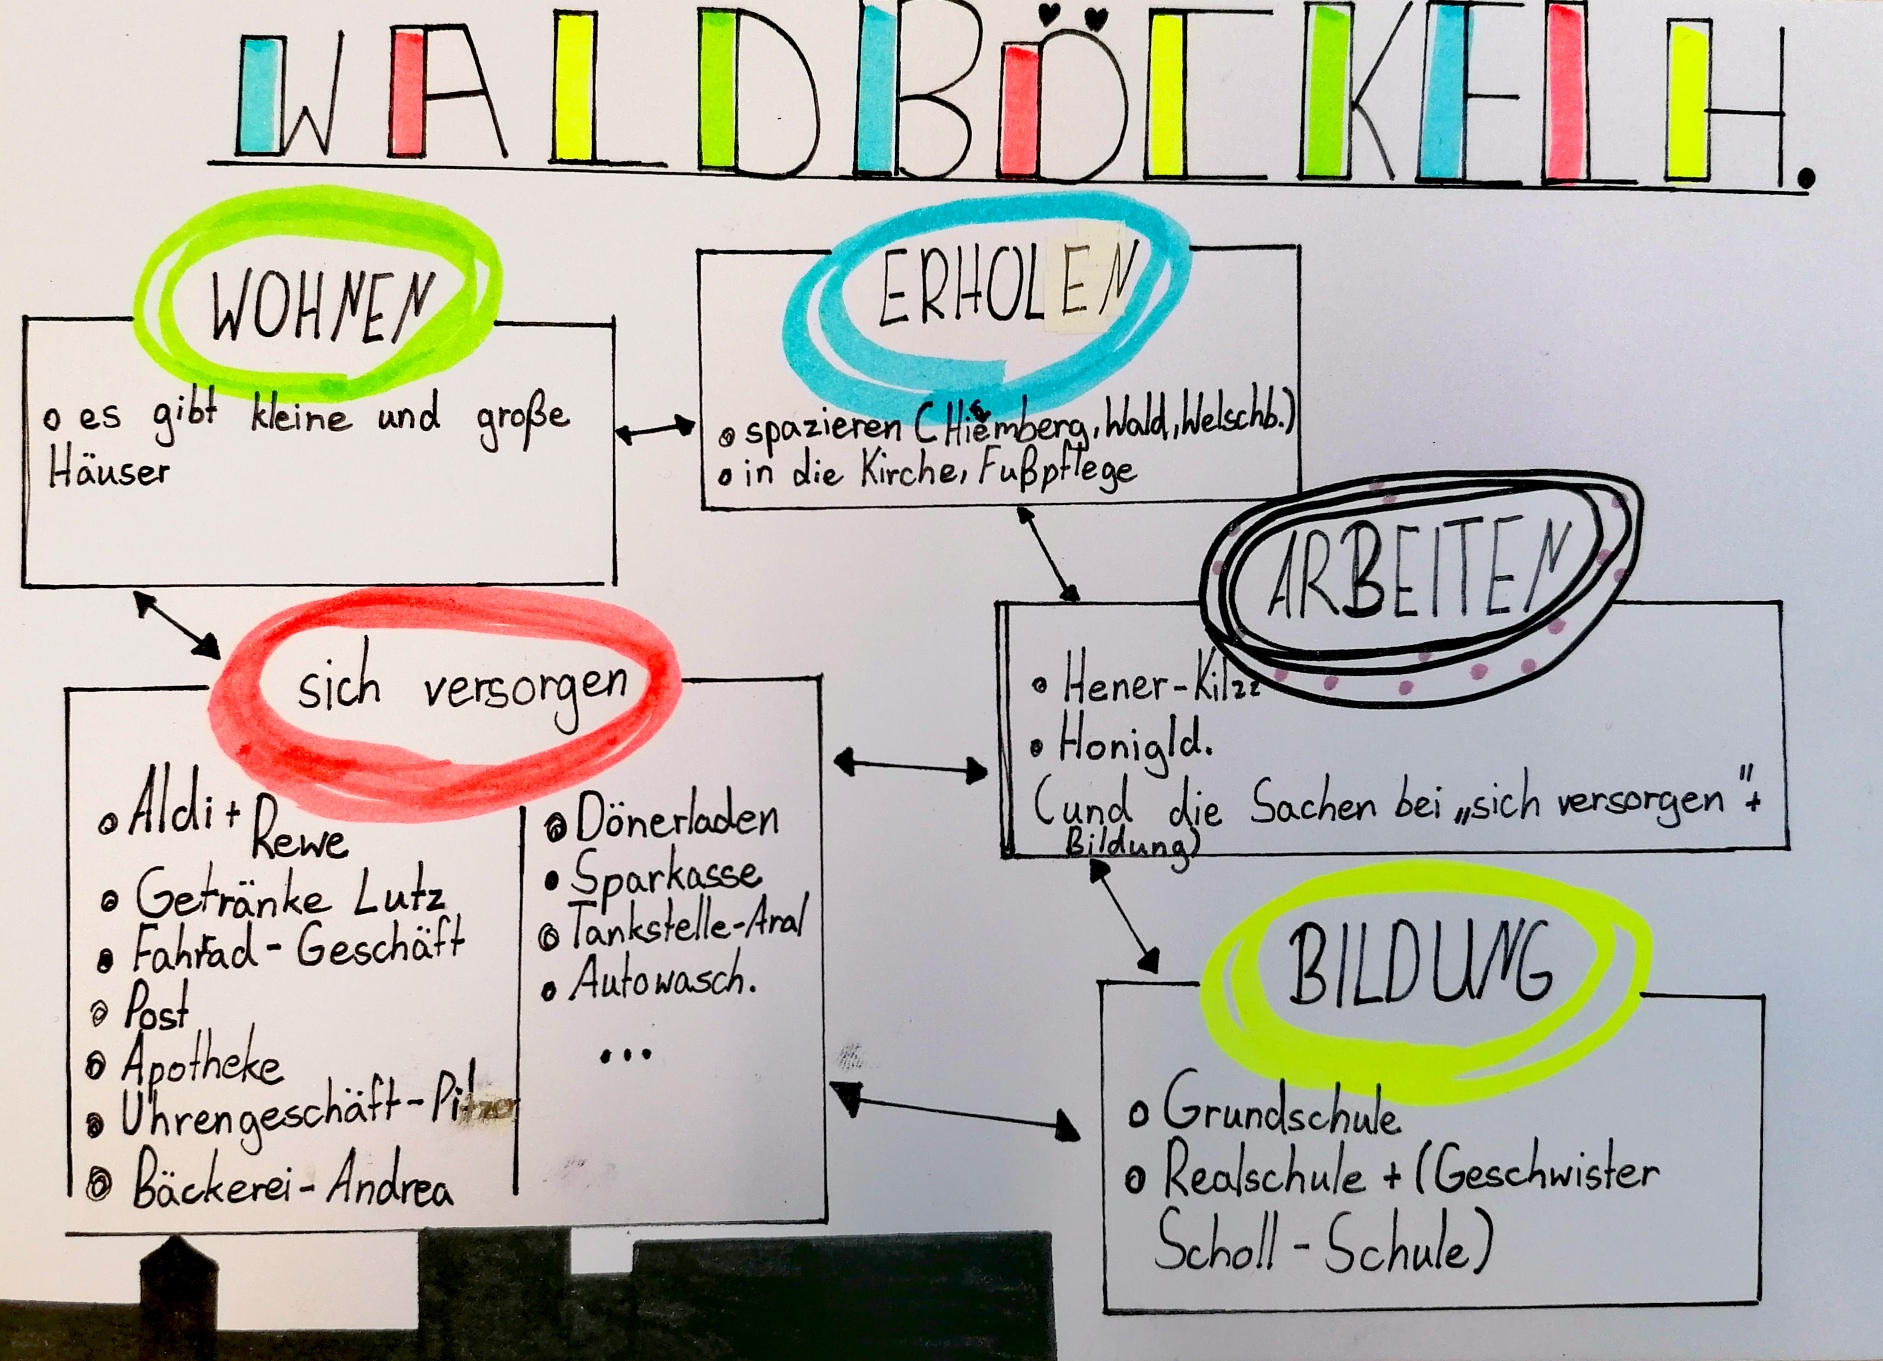 WALDBÖCKELH.
WOHNEN
o es gibt kleine und große
Häuser
ERHOLEN
o spazieren (Hiemberg, Wald, Welschb.)
o in die Kirche, Fußpflege
ARBEITEN
• Hener-Kilzz
• Honigld.
(und die Sachen bei „sich versorgen" +
Bildung)
sich versorgen
• Aldi +
Rewe
• Getränke Lutz
• Fahrrad-Geschäft
• Post
• Apotheke
• Uhrengeschäft-Pilzer
• Bäckerei-Andrea
• Dönerladen
• Sparkasse
• Tankstelle-Aral
• Autowasch.
...
BILDUNG
o Grundschule
o Realschule + (Geschwister
Scholl - Schule)